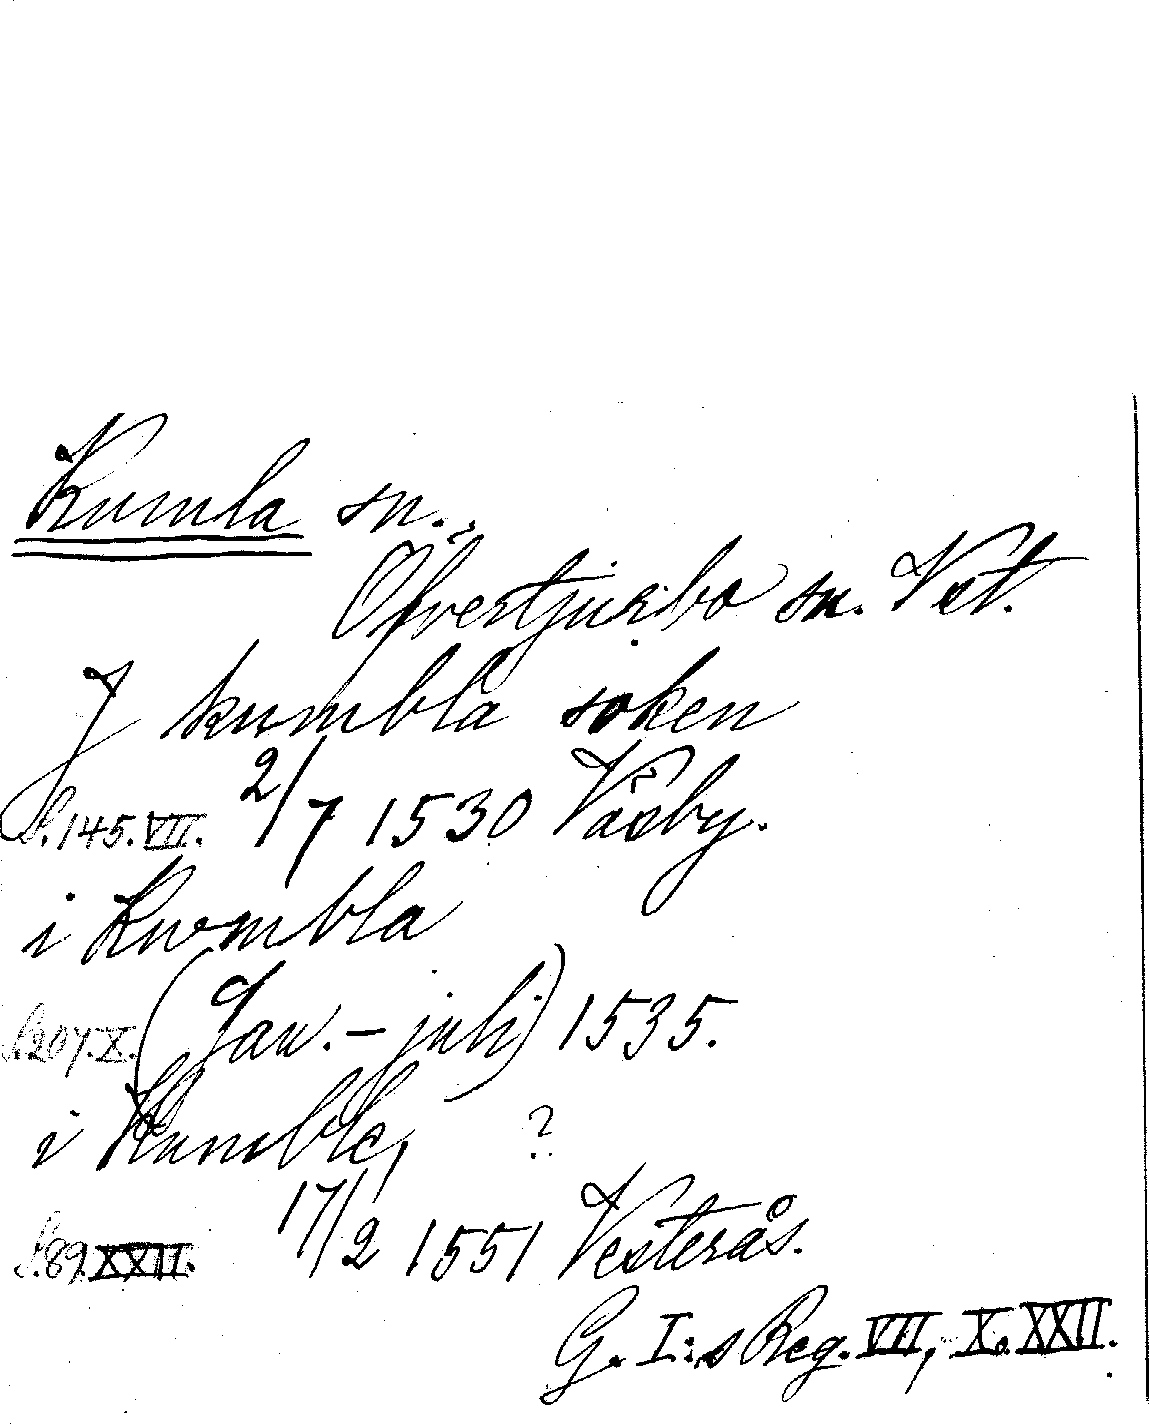 Kumla sn.,
Ofvertjurbo sn. Vst.
J kumbla soken
S. 145. VII. 2/7 1530 Väsby.
i Kumbla
S. 207. X. (Jan. – juli) 1535.
i Kumble, ?
S. 89. XXII. 17/2 1551 Vesterås.
G. I:s Reg. VII, X. XXII.